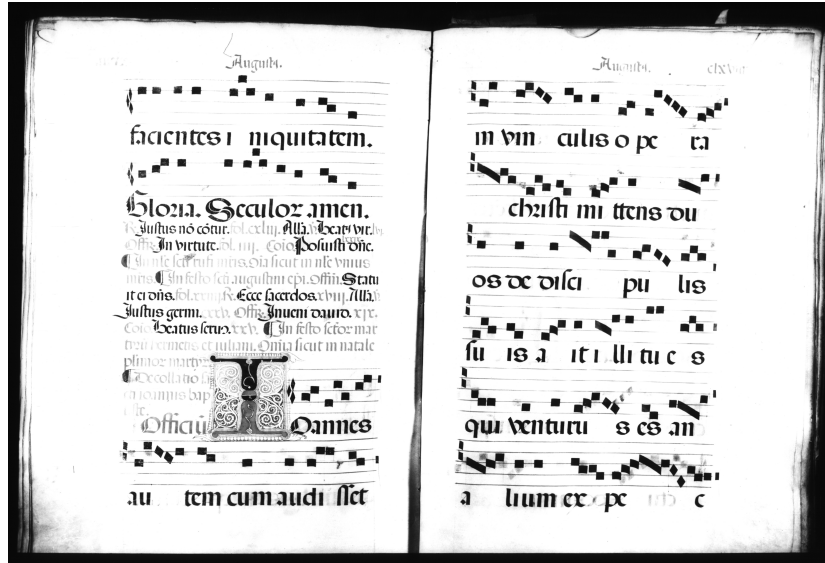 Augusti.
facientes i niquitatem.
Gloria. Seculor amen.
Justus nõ cõtur. fol. cxliii. Alla. Beat9 vir.
Offm In virtute. fol. iiii. Coio Posuisti dñe.
In festo scti augustini epi. Offm. Statu
it ei dñs. fol. R. Ecce sacerdos. xviii. Alla.
Justus germi. xxv. Offm Inueni dauid. xix.
Coio Beatus seru9. xxv. In festo sctor mar
et iuliani. Omia sicut in natale
plimor martyr
Decollatio
bap
Officiũ IOannes
au tem cum audi sset
Augusti. clxvii
in vin culis o pe ra
christi mi ttens du
os de disci pu lis
su is a it i lli tu e s
qui venturu s es an
a lium ex pe c